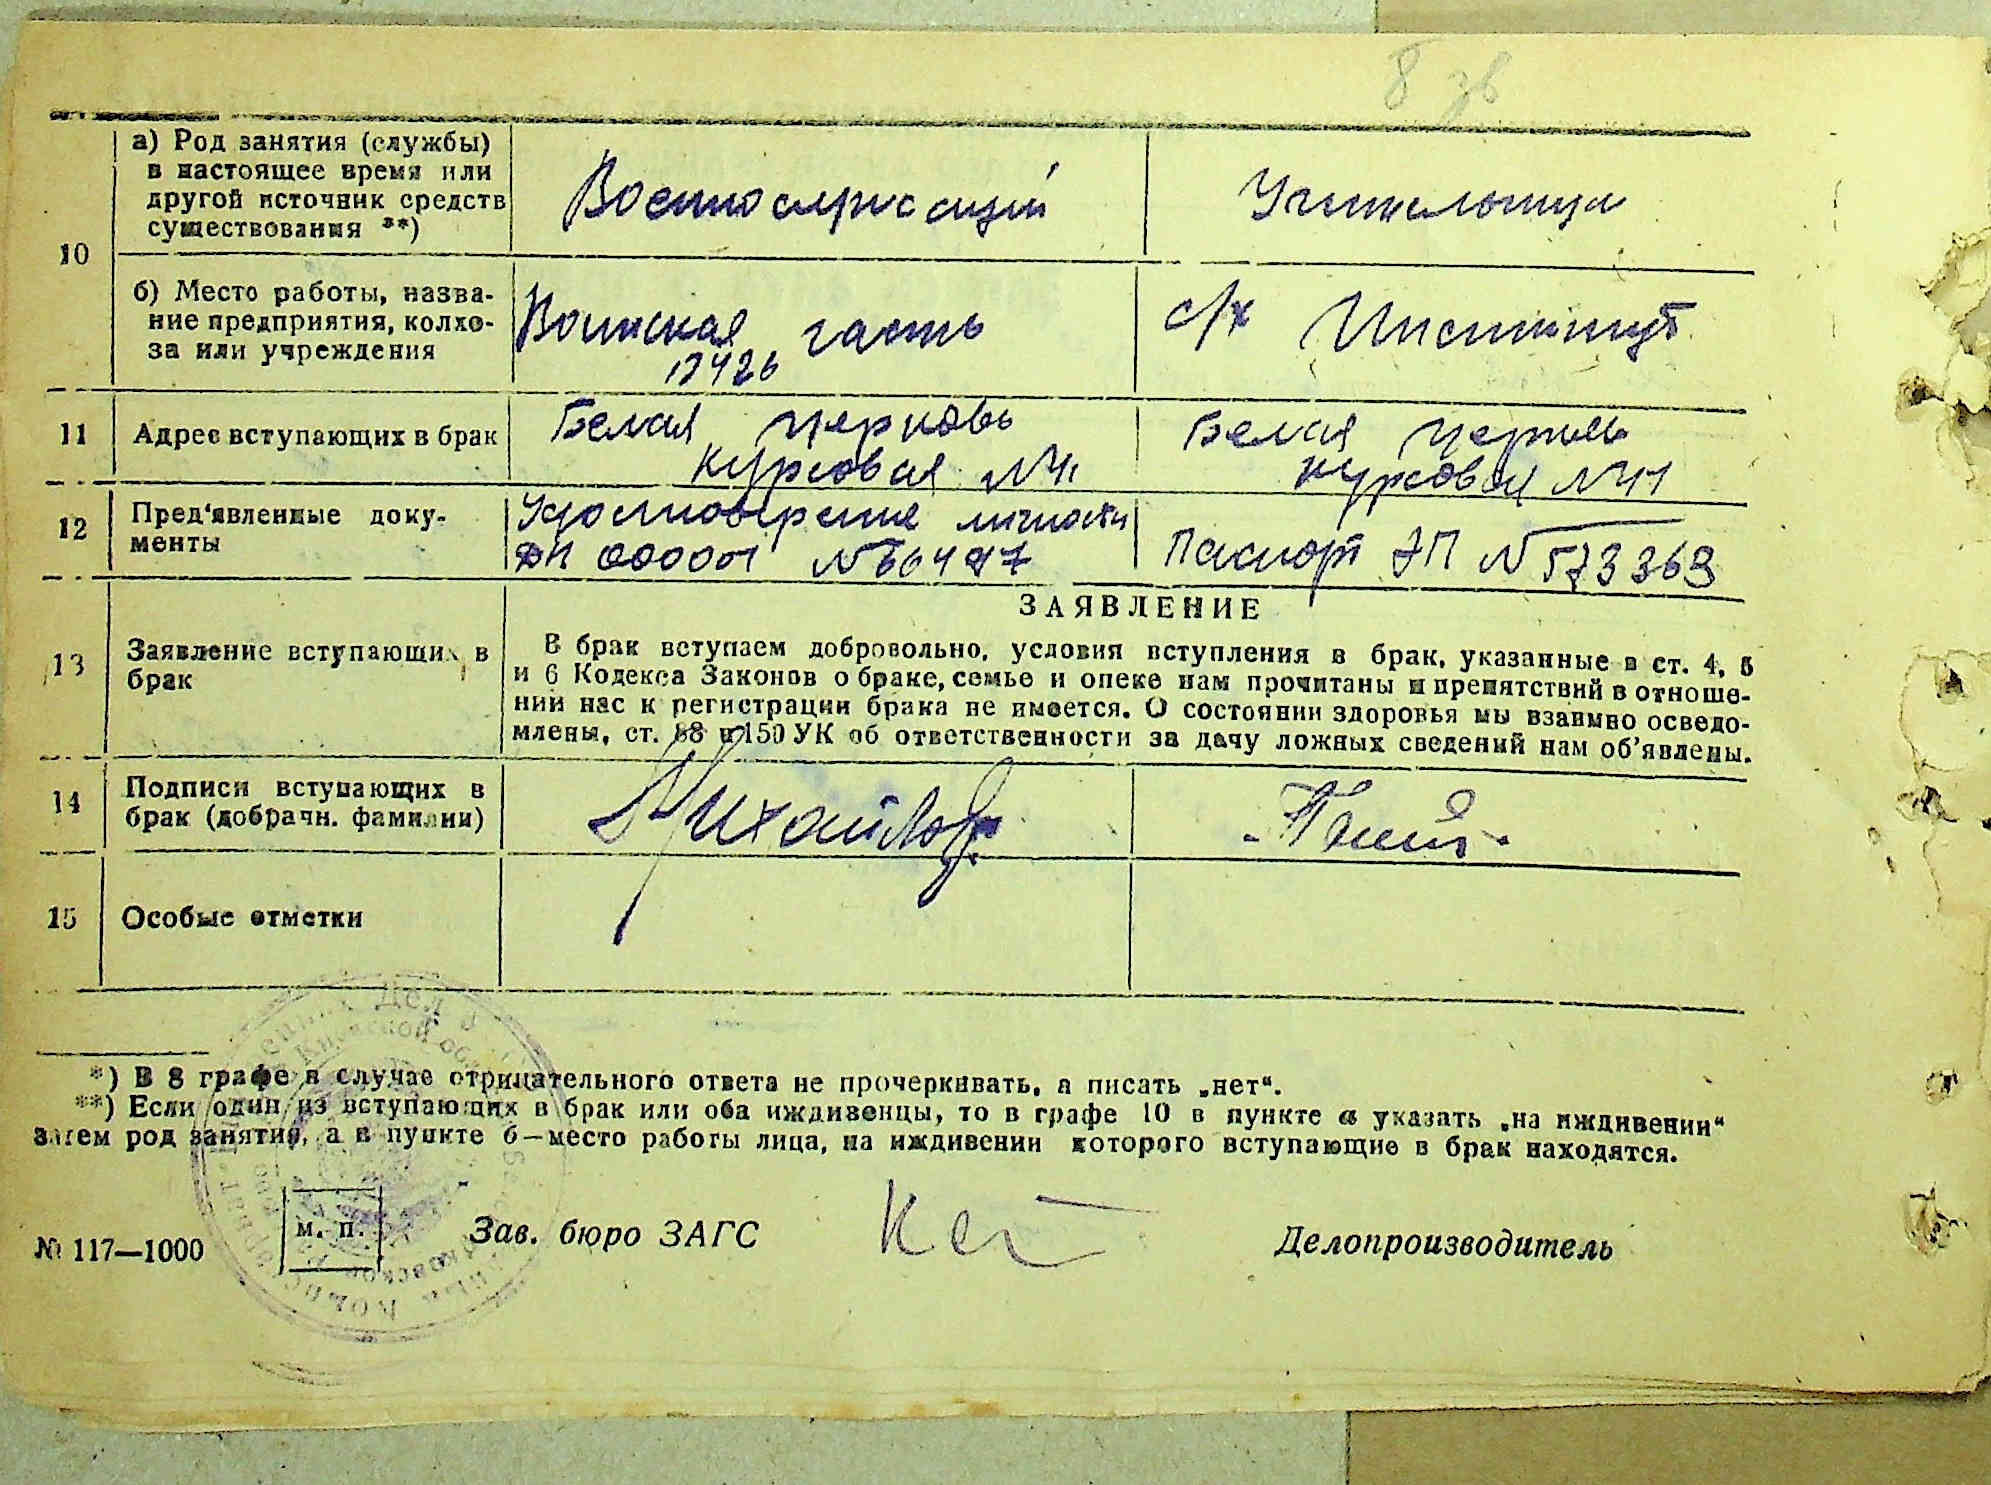 8 зв
10
а) Род занятия (службы)
в настоящее время или
другой источник средств
существования **)
Военнослужащий
Учительница
б) Место работы, назва-
ние предприятия, колхо-
за или учреждения
Воинская часть
с/х Институт
11
Адрес вступающих в брак
Белая церковь
Курсовая №
Белая церковь
Курсовая №
12
Пред'явленные доку-
менты
Удостоверение личности
Паспорт № 573369
13
Заявление вступающих в
брак
ЗАЯВЛЕНИЕ
В брак вступаем добровольно, условия вступления в брак, указанные в ст. 4, 5
и 6 Кодекса Законов о браке, семье и опеке нам прочитаны и препятствий в отноше-
нии нас к регистрации брака не имеется. О состоянии здоровья мы взаимно осведо-
млены, ст. 88 и 150 УК об ответственности за дачу ложных сведений нам об'явлены.
14
Подписи вступающих в
брак (добрачн. фамилии)
Михайлов
15
Особые отметки
*) В 8 графе в случае отрицательного ответа не прочеркивать, а писать „нет“.
**) Если один из вступающих в брак или оба иждивенцы, то в графе 10 в пункте а указать „на иждивении“
затем род занятия, а в пункте б—место работы лица, на иждивении которого вступающие в брак находятся.
№ 117—1000
м. п.
Зав. бюро ЗАГС
Делопроизводитель